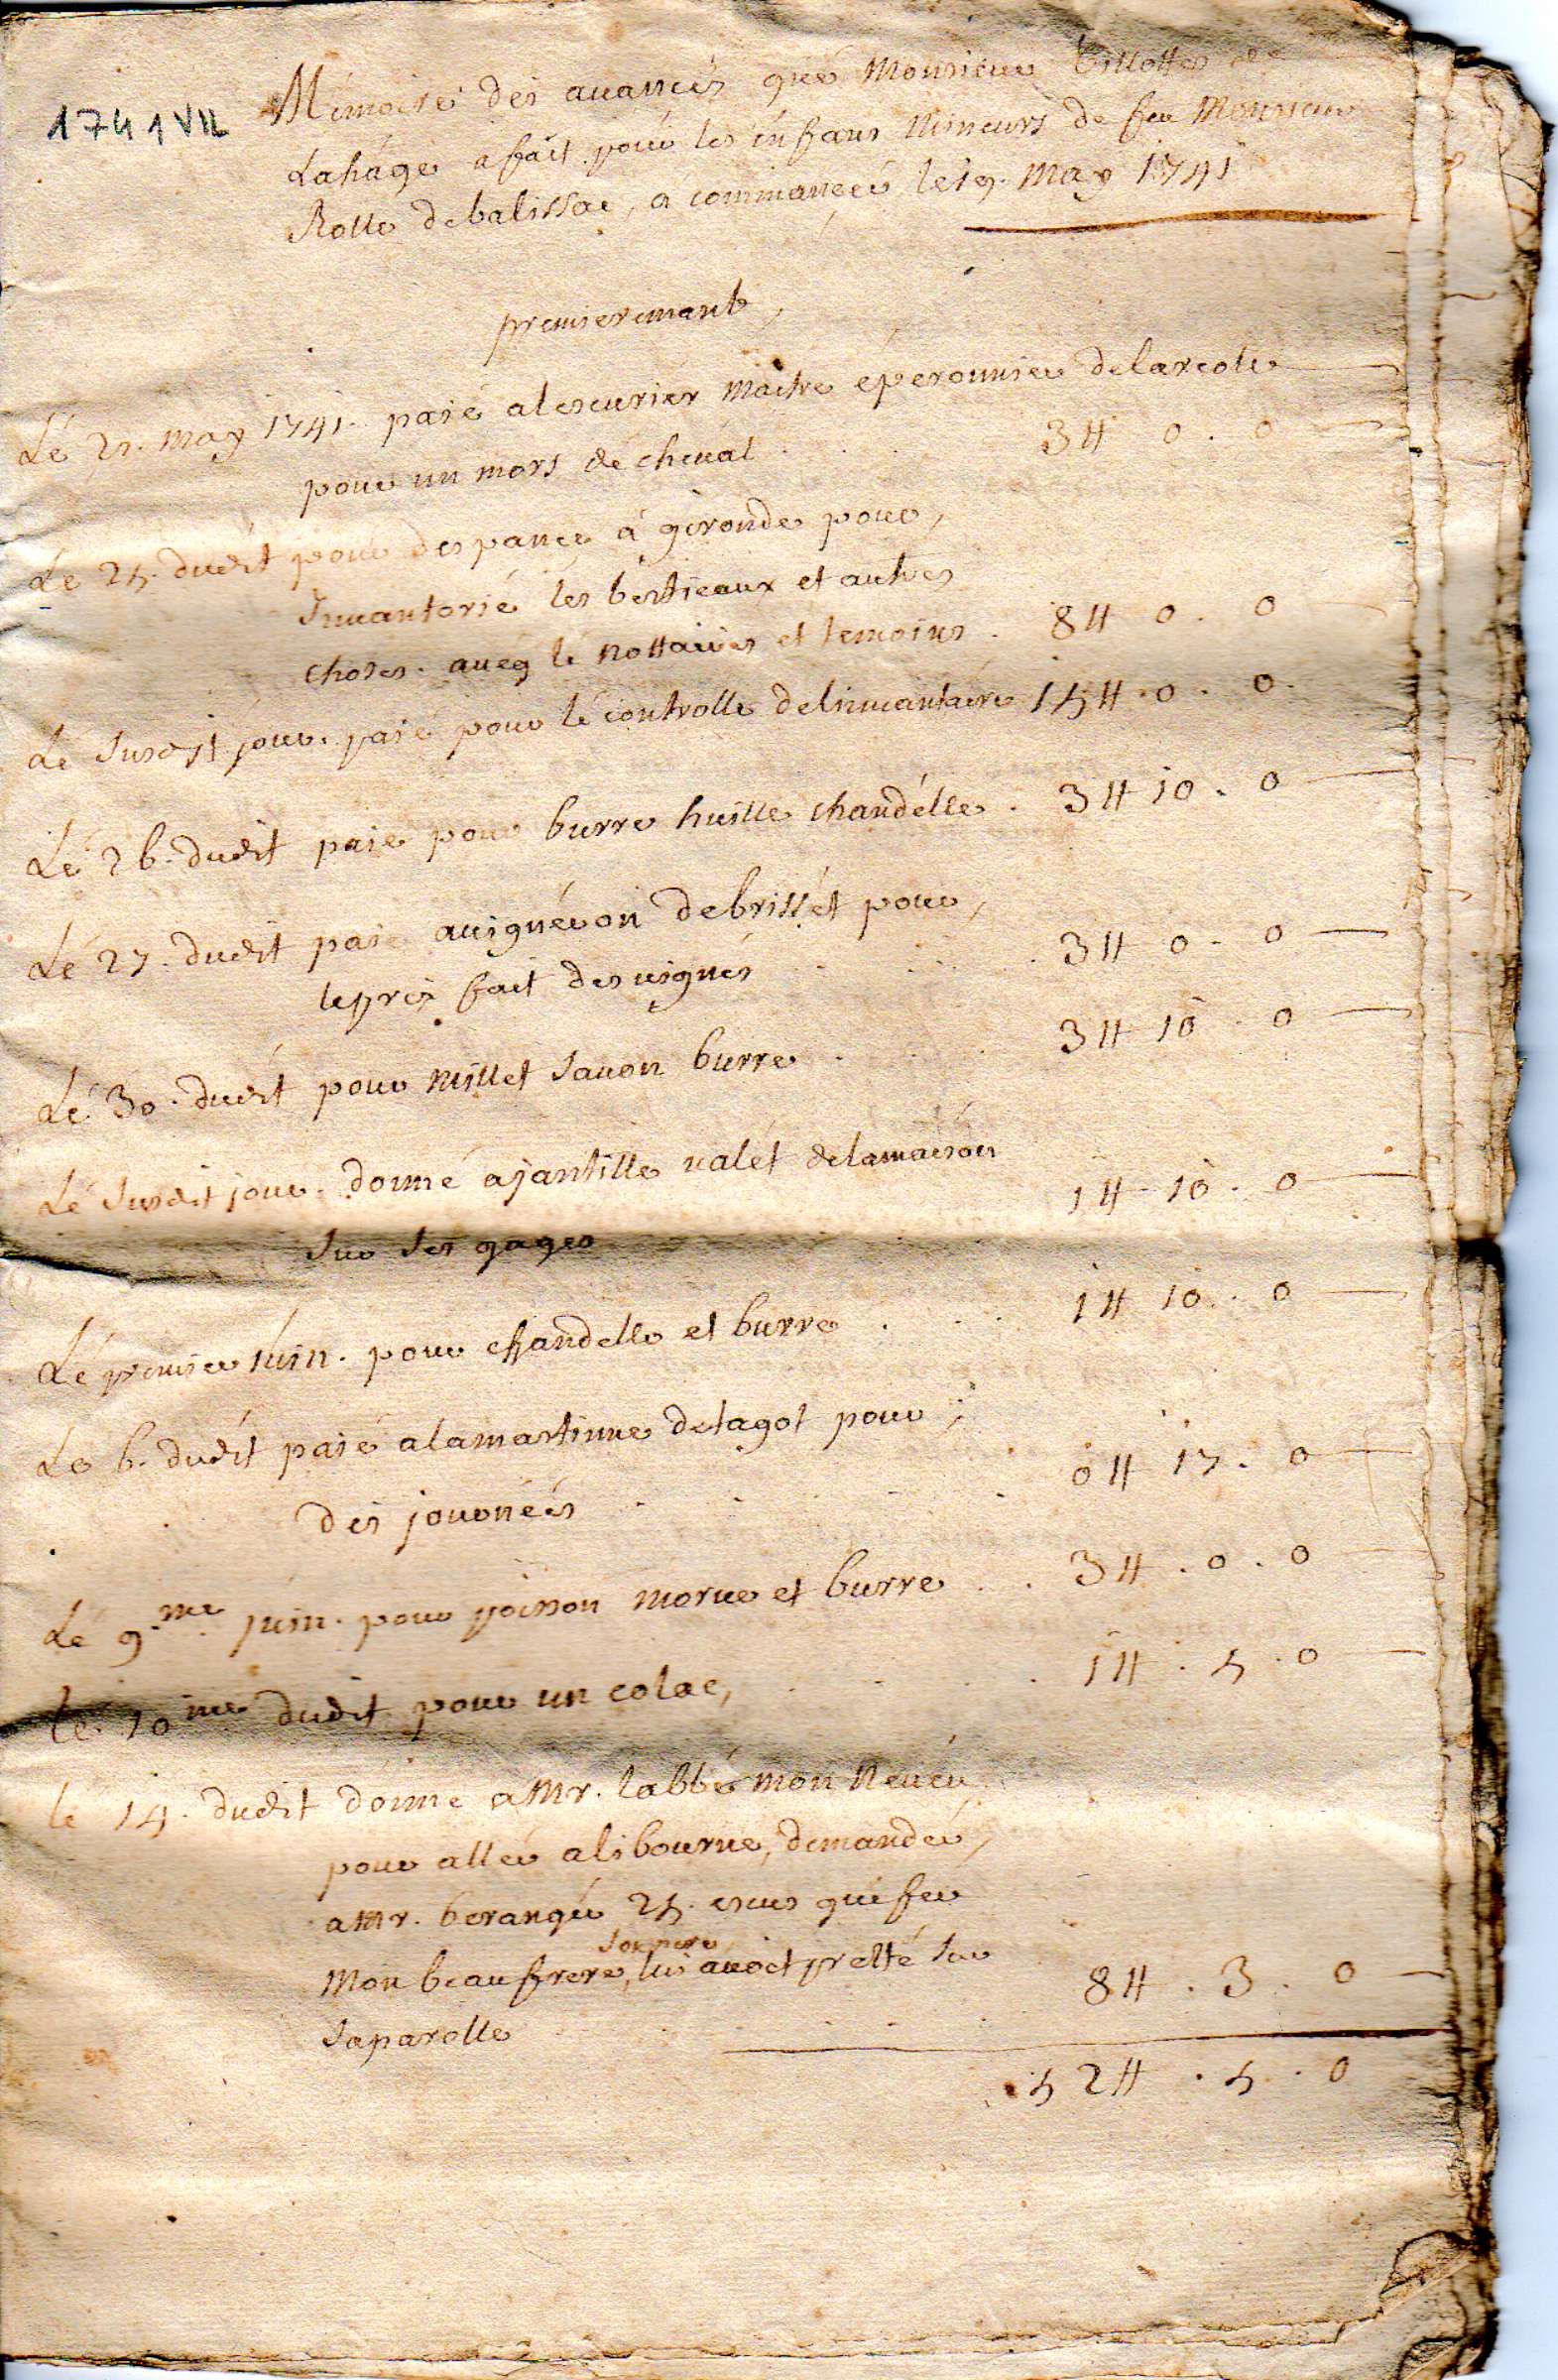 1741 VII
Mémoire des auances que Monsieur Billottes de
Lahage a fait pour les enfans Mineurs de feu Monsieur
Rolle debalissac, a commancer le 19. May 1741
premieremant,
Lé 21. may 1741. paié alescurier maitre éperonnier delareole
pour un mors de cheual . . . 3 ₶ 0 . 0
Le 25. dudit pour despance a gironde pour,
Inuantorié les bestieaux et autres
choses. aueq le nottaires et temoins . 8 ₶ 0 . 0
Lé Susdit jour. paié pour le controlle delinuantaire 15 ₶ . 0 . 0
Lé 26. dudit paié pour burre huille chandélle . 3 ₶ 10 . 0
Lé 27. dudit paié auigneron debrissét pour,
leprix fait des uignes . . . 3 ₶ 0 . 0
Lé 30. dudit pour millet sauon burre . . . 3 ₶ 10 . 0
Lé Susdit jour. donné ajantille ualét delamaison
Sur ses gages 1 ₶ 10 . 0
Lé premier Juin. pour chandelle et burre . . . 1 ₶ 10 . 0
Le 6. dudit paié alamartinne detagot pour,
des journées . . . . . 0 ₶ 17 . 0
Lé 9.me juin. pour poisson morue et burre . . 3 ₶ . 0 . 0
le 10 me dudit pour un colac, . . . . 1 ₶ . 5 . 0
le 14. dudit donné a Mr. labbé mon Neueu
pour aller alibourne, demander,
a Mr. beranger 25. escus que feu
Mon beaufrere, son pere lui auoit pretté sur
Saparolle . . . 8 ₶ . 3 . 0
52 ₶ . 5 . 0